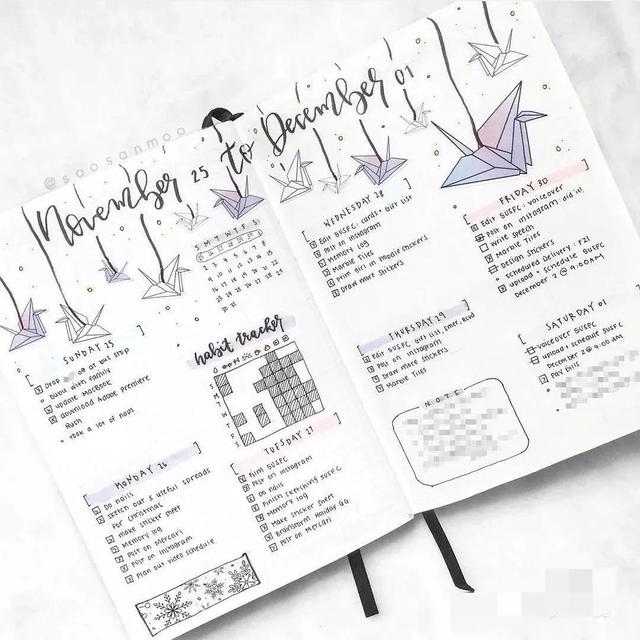 @soosanmoo
November 25 to December 01
S M T W T F S
SUNDAY 25
Drop off at bus stop
bubu with family
update MacBook
download Adobe Premiere
Rush
took a lot of naps
habit tracker
M
T
W
T
F
MONDAY 26
Do nails
sketch out 3 useful spreads
for Christmas
make sticker sheet
Memory log
Post on Mercari
Post on Instagram
Plan out video schedule
TUESDAY 27
Film SUSFC
Post on Instagram
Do nails
Finish sketching SUSFC
Memory log
Make Sticker Sheet
Brainstorm Holiday GG
Post on Mercari
WEDNESDAY 28
Edit SUSFC: cards + Gift List
Post on Instagram
Memory log
Marble Tiles
Print girl in hoodie stickers
Draw more stickers
THURSDAY 29
Edit SUSFC gift List,
Post on Instagram
Draw more stickers
Marble Tiles
NOTE
FRIDAY 30
Edit SUSFC: voiceover
Post on Instagram did it!
Write speech
Marble Tiles
Design Stickers
scheduled Delivery: FZI
upload + schedule SUSFC
December 2 @ 9:00AM
SATURDAY 01
voiceover SUSFC
upload + schedule SUSFC
December 2 @ 9:00 AM
Pay Bills